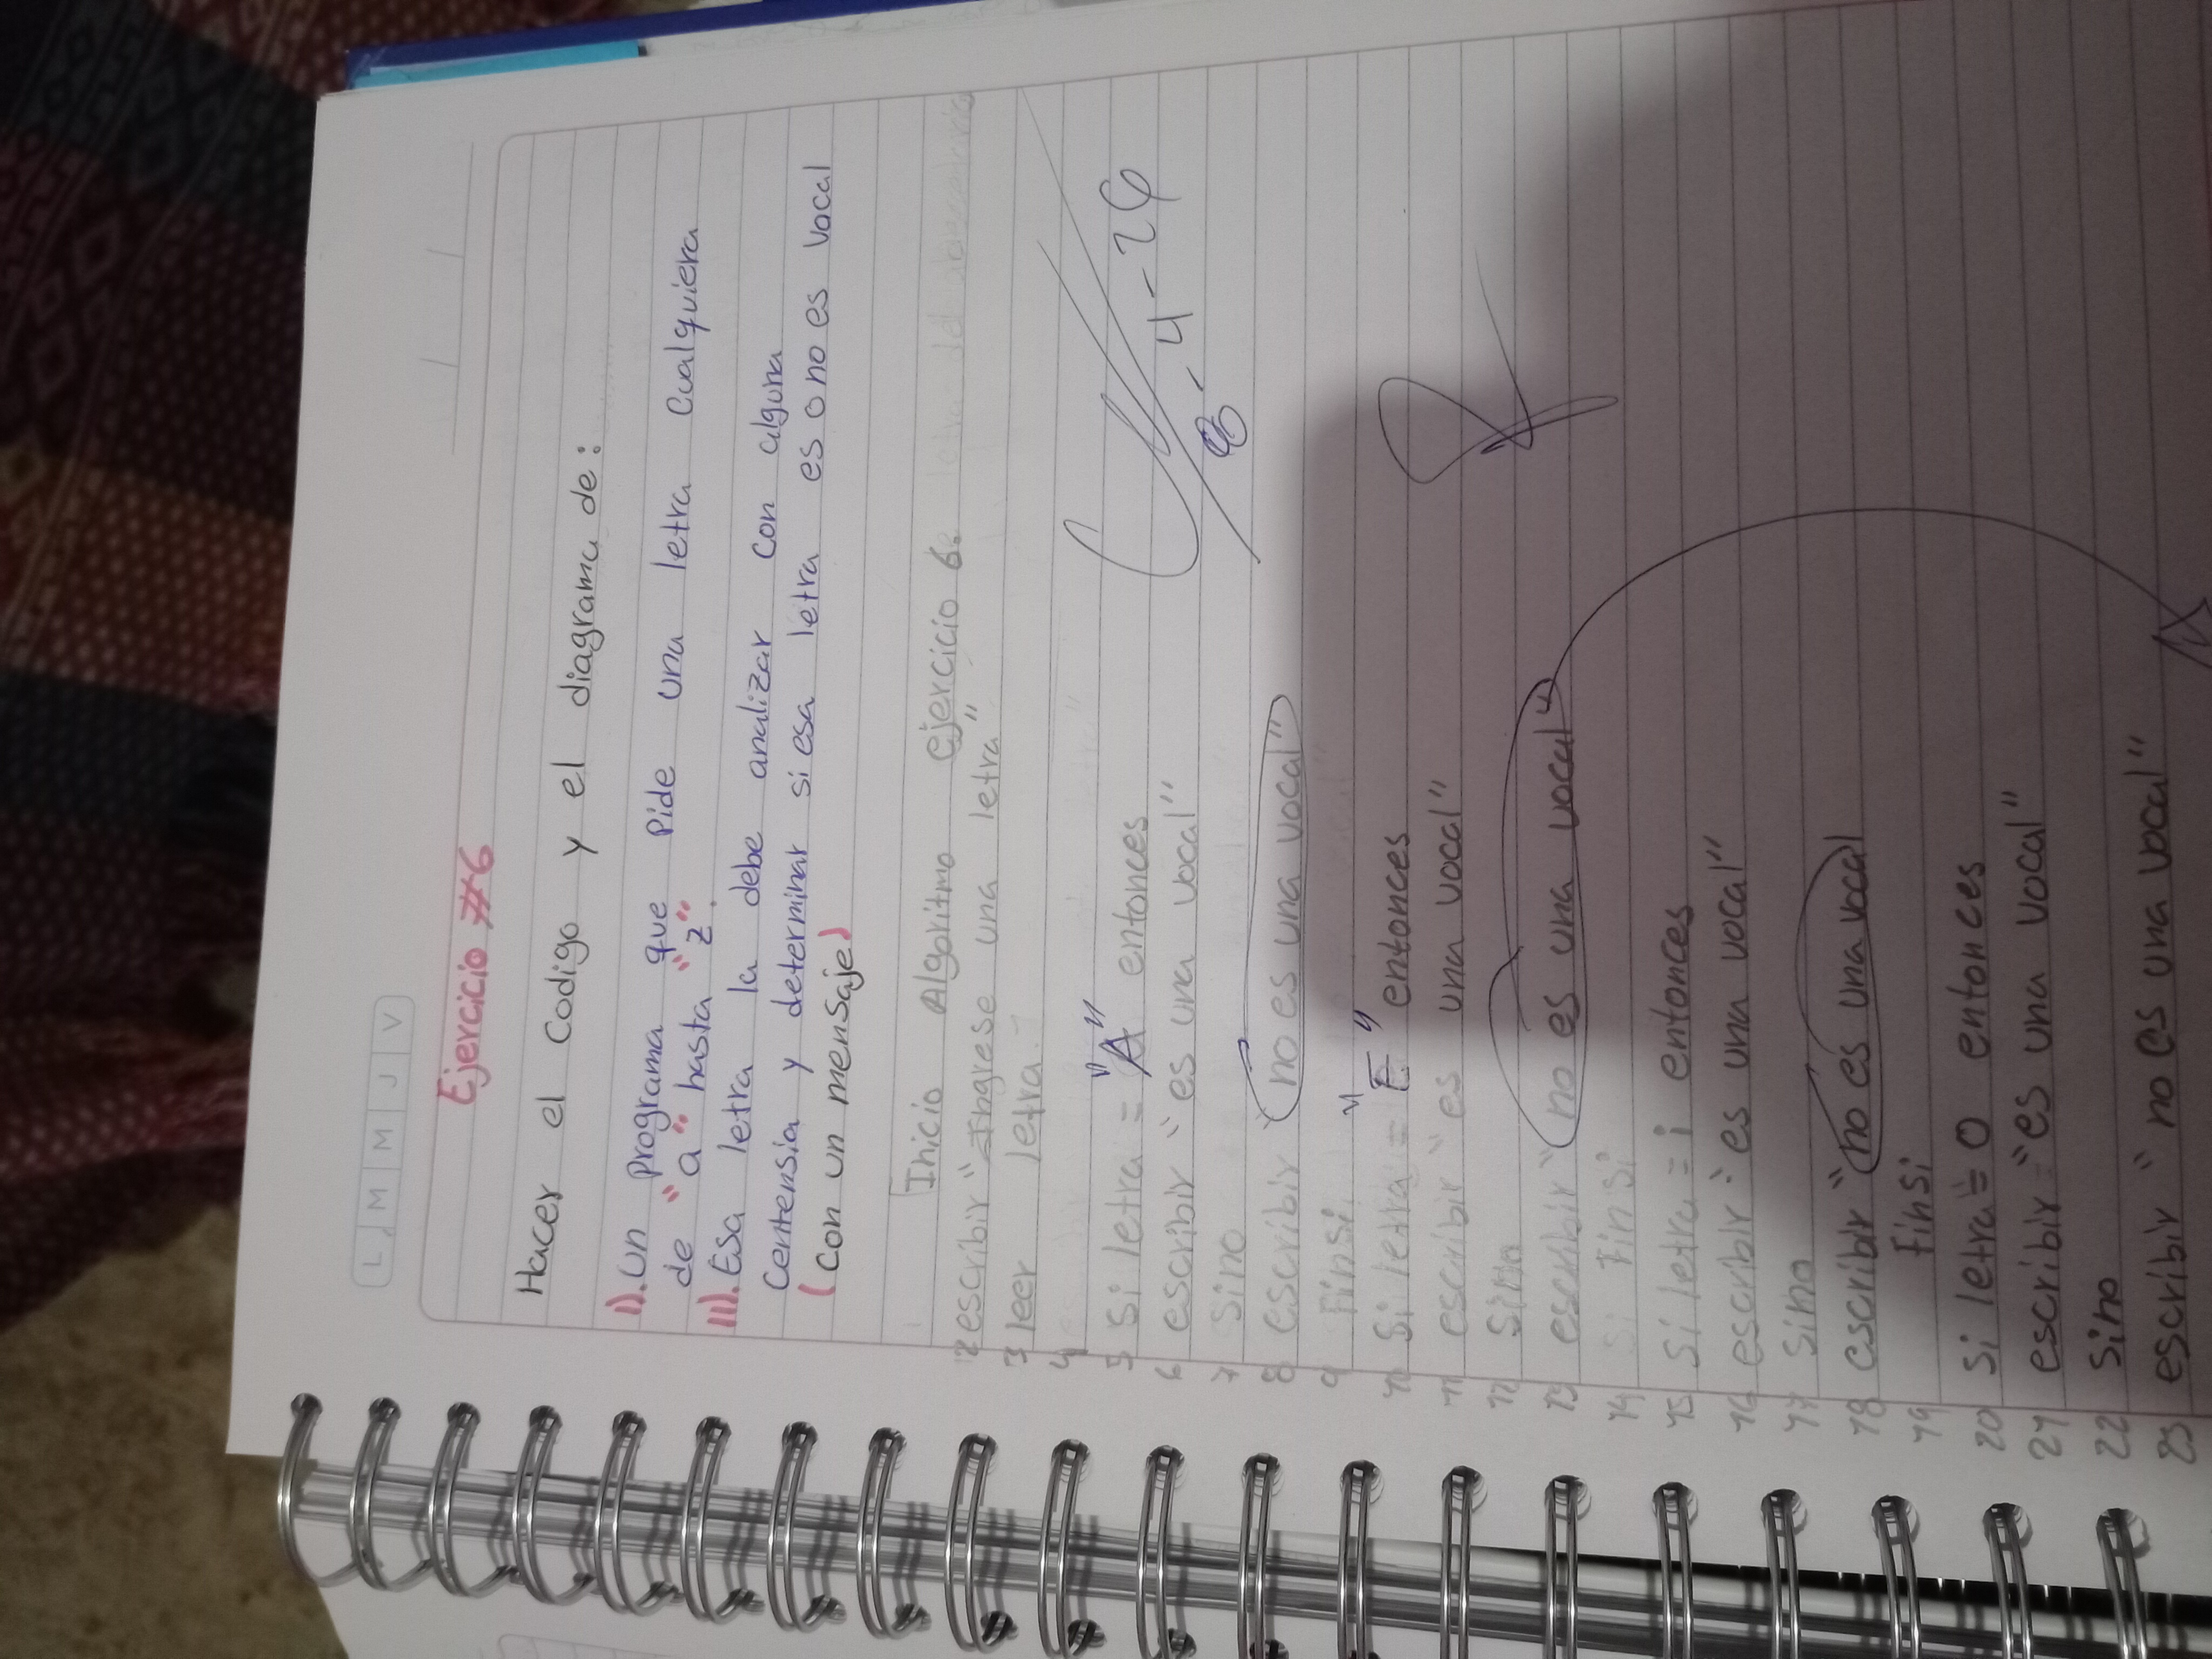 L M M J V
Ejercicio #6
Hacer el Codigo y el diagrama de:
I). Un programa que Pide una letra cualquiera
de "a" hasta "z".
II). Esa letra la debe analizar con alguna
Centensia y determinar si esa letra es o no es vocal
(con un mensaje)
Inicio Algoritmo ejercicio 6.
2 escribir "Ingrese una letra"
3 leer letra.
4
5 si letra = "A" entonces
6 escribir "es una vocal"
7 sino
8 escribir "no es una vocal"
9 Finsi.
10 si letra = "E" entonces
11 escribir "es una vocal"
12 sino
13 escribir "no es una vocal"
14 Finsi
15 si letra = i entonces
16 escribir "es una vocal"
17 sino
18 escribir "no es una vocal
19 Finsi
20 si letra = O entonces
21 escribir "es una vocal"
22 sino
23 escribir "no es una vocal"
8-4-26